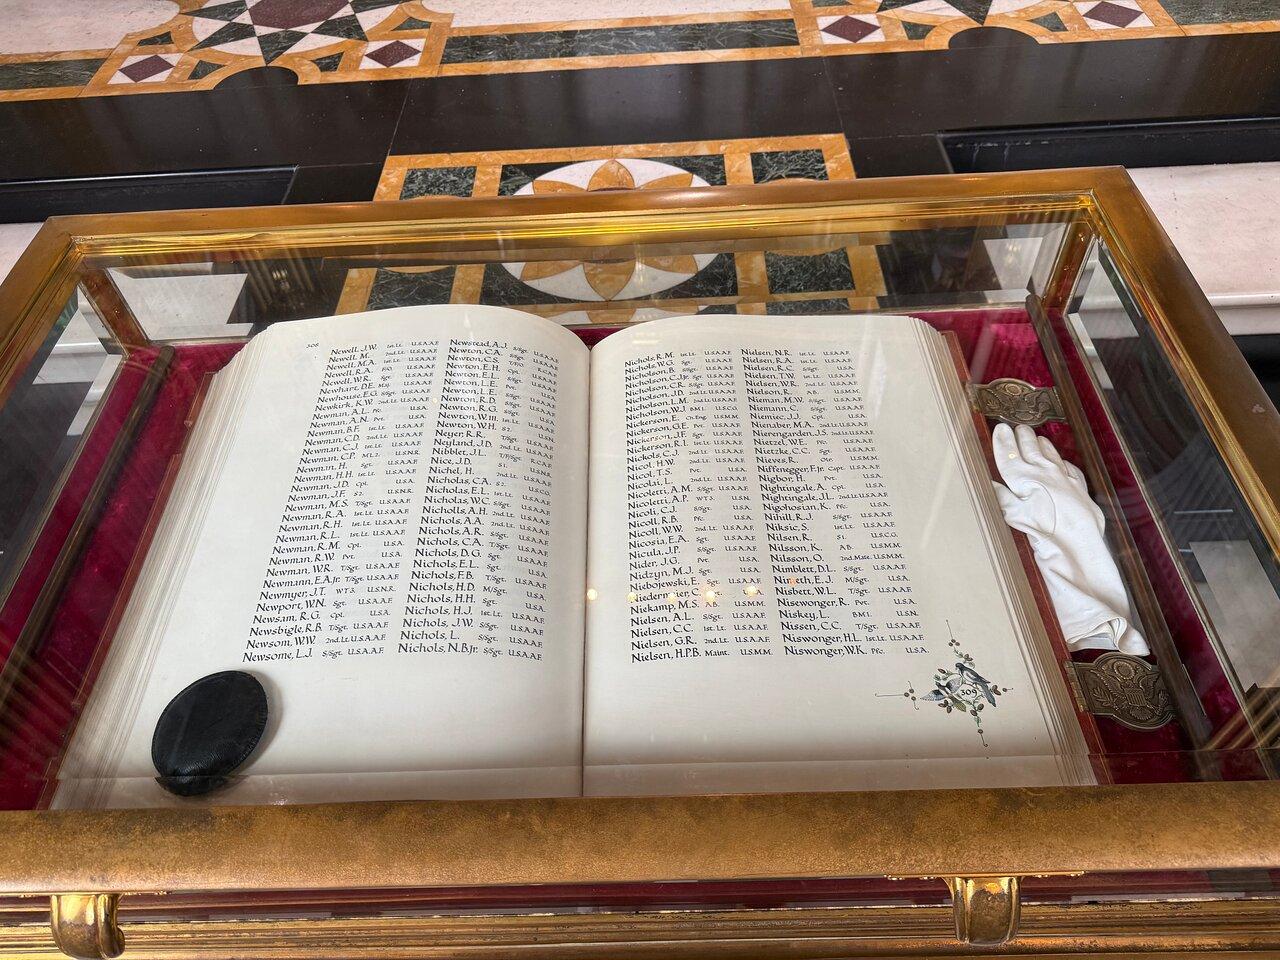 308
Newell, J.W. 1st.Lt. U.S.A.A.F.
Newell, M. 2nd.Lt. U.S.A.A.F.
Newell, M.A. 1st.Lt. U.S.A.A.F.
Newell, R.A. F/O. U.S.A.A.F.
Newell, W.R. Sgt. U.S.A.A.F.
Newhart, D.E. U.S.A.A.F.
Newhouse, E.G. S/Sgt. U.S.A.A.F.
Newkirk, K.W. 2nd.Lt. U.S.A.A.F.
Newman, A.L. Pfc. U.S.A.
Newman, A.N. Pvt. U.S.A.
Newman, B.F. 1st.Lt. U.S.A.A.F.
Newman, C.D. 2nd.Lt. U.S.A.A.F.
Newman, C.J. 1st.Lt. U.S.A.A.F.
Newman, C.P. U.S.N.R.
Newman, H. Sgt. U.S.A.A.F.
Newman, H.H. 1st.Lt. U.S.A.A.F.
Newman, J.D. Cpl. U.S.A.
Newman, J.F. S2. U.S.N.R.
Newman, M.S. T/Sgt. U.S.A.A.F.
Newman, R.A. 1st.Lt. U.S.A.A.F.
Newman, R.H. 1st.Lt. U.S.A.A.F.
Newman, R.L. 1st.Lt. U.S.A.A.F.
Newman, R.M. Cpl. U.S.A.
Newman, R.W. Pvt. U.S.A.
Newman, W.R. T/Sgt. U.S.A.A.F.
Newmann, E.A.Jr. T/Sgt. U.S.A.A.F.
Newmyer, J.T. WT3. U.S.N.R.
Newport, W.N. Sgt. U.S.A.A.F.
Newsam, R.G. Cpl. U.S.A.
Newsbigle, R.B. T/Sgt. U.S.A.A.F.
Newsom, W.W. 2nd.Lt. U.S.A.A.F.
Newsome, L.J. S/Sgt. U.S.A.A.F.
Newstead, A.J. S/Sgt. U.S.A.A.F.
Newton, C.A. S/Sgt. U.S.A.A.F.
Newton, C.S. R.C.A.F.
Newton, E.H. Cpl. U.S.A.
Newton, E.L. Sgt. U.S.A.A.F.
Newton, L.E. Pvt. U.S.A.
Newton, L.E. U.S.A.A.F.
Newton, R.D. U.S.A.A.F.
Newton, R.G. Sgt. U.S.A.A.F.
Newton, W.III. 1st.Lt. U.S.A.A.F.
Newton, W.H. S2. U.S.N.
Neyer, R.R. T/Sgt. U.S.A.A.F.
Neyland, J.D. 2nd.Lt. U.S.A.A.F.
Nibbler, J.L. T/Sgt. R.C.A.F.
Nice, J.D. S1. U.S.N.R.
Nichel, H. 2nd.Lt. U.S.A.A.F.
Nicholas, C.A. S2. U.S.C.G.
Nicholas, E.L. Sgt. U.S.A.A.F.
Nicholas, W.C. S/Sgt. U.S.A.A.F.
Nicholls, A.H. 2nd.Lt. U.S.A.A.F.
Nichols, A.A. 2nd.Lt. U.S.A.A.F.
Nichols, A.R. S/Sgt. U.S.A.A.F.
Nichols, C.A. T/Sgt. U.S.A.A.F.
Nichols, D.G. Sgt. U.S.A.A.F.
Nichols, E.L. Sgt. U.S.A.A.F.
Nichols, F.B. T/Sgt. U.S.A.A.F.
Nichols, H.D. M/Sgt. U.S.A.A.F.
Nichols, H.H. Sgt. U.S.A.A.F.
Nichols, H.J. 1st.Lt. U.S.A.A.F.
Nichols, J.W. S/Sgt. U.S.A.A.F.
Nichols, L. S/Sgt. U.S.A.A.F.
Nichols, N.B.Jr. S/Sgt. U.S.A.A.F.
Nichols, R.M. 1st.Lt. U.S.A.A.F.
Nichols, W.G. Sgt. U.S.A.A.F.
Nicholson, B. S/Sgt. U.S.A.A.F.
Nicholson, C.Jr. Sgt. U.S.A.A.F.
Nicholson, C.R. S/Sgt. U.S.A.A.F.
Nicholson, J.D. 2nd.Lt. U.S.A.A.F.
Nicholson, L.M. 2nd.Lt. U.S.A.A.F.
Nicholson, W.J. BM1. U.S.C.G.
Nickerson, E. Ch.Eng. U.S.M.M.
Nickerson, G.E. Pvt. U.S.A.
Nickerson, J.F. Sgt. U.S.A.A.F.
Nickerson, R.I. 1st.Lt. U.S.A.A.F.
Nickols, C.J. 2nd.Lt. U.S.A.A.F.
Nicol, H.W. 2nd.Lt. U.S.A.A.F.
Nicol, T.S. Pvt. U.S.A.
Nicolai, L. 2nd.Lt. U.S.A.A.F.
Nicoletti, A.M. S/Sgt. U.S.A.A.F.
Nicoletti, A.P. WT3. U.S.N.
Nicoli, C.J. S/Sgt. U.S.A.A.F.
Nicoll, R.B. Pfc. U.S.A.
Nicoll, W.W. 2nd.Lt. U.S.A.A.F.
Nicosia, E.A. Sgt. U.S.A.A.F.
Nicula, J.P. S/Sgt. U.S.A.A.F.
Nider, J.G. Pvt. U.S.A.
Nidzyn, M.J. Sgt. U.S.A.A.F.
Nibojewski, E. Sgt. U.S.A.A.F.
Niedermeier, C. U.S.A.A.F.
Niekamp, M.S. AB. U.S.M.M.
Nielsen, A.L. S/Sgt. U.S.A.A.F.
Nielsen, C.C. 1st.Lt. U.S.A.A.F.
Nielsen, G.R. 2nd.Lt. U.S.A.A.F.
Nielsen, H.P.B. Maint. U.S.M.M.
Nielsen, N.R. 1st.Lt. U.S.A.A.F.
Nielsen, R.A. 1st.Lt. U.S.A.A.F.
Nielsen, R.C. S/Sgt. U.S.A.
Nielsen, T.W. 1st.Lt. U.S.A.A.F.
Nielsen, W.R. 2nd.Lt. U.S.A.A.F.
Nielson, R. AB. U.S.M.M.
Nieman, M.W. S/Sgt. U.S.A.A.F.
Niemann, C. S/Sgt. U.S.A.A.F.
Niemiec, J.J. Cpl. U.S.A.
Nienaber, M.A. 2nd.Lt. U.S.A.A.F.
Nierengarden, J.S. 2nd.Lt. U.S.A.A.F.
Nietzel, W.E. Pfc. U.S.A.
Nietzke, C.C. Sgt. U.S.A.A.F.
Nieves, R. Olr. U.S.M.M.
Niffenegger, F.Jr. Capt. U.S.A.A.F.
Nigbor, H. Pvt. U.S.A.
Nightingale, A. Cpl. U.S.A.
Nightingale, J.L. 2nd.Lt. U.S.A.A.F.
Nigohosian, K. Pfc. U.S.A.
Nihill, R.J. S/Sgt. U.S.A.A.F.
Niksic, S. 1st.Lt. U.S.A.A.F.
Nilsen, R. S1. U.S.C.G.
Nilsson, K. AB. U.S.M.M.
Nilsson, O. 2nd.Mate. U.S.M.M.
Nimblett, D.L. S/Sgt. U.S.A.A.F.
Nimeth, E.J. M/Sgt. U.S.A.A.F.
Nisbett, W.L. T/Sgt. U.S.A.A.F.
Nisewonger, R. Pvt. U.S.A.
Niskey, L. BM1. U.S.N.
Nissen, C.C. T/Sgt. U.S.A.A.F.
Niswonger, H.L. 1st.Lt. U.S.A.A.F.
Niswonger, W.K. Pfc. U.S.A.
309